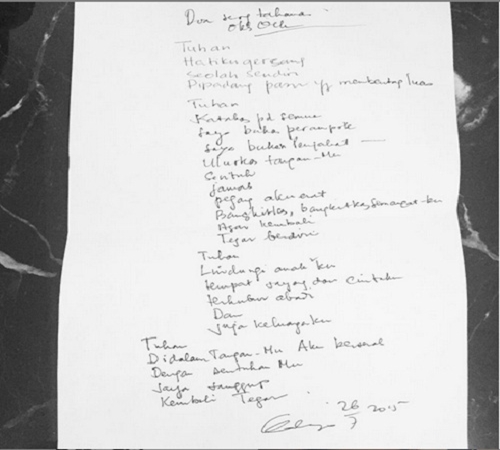 Doa seorg tahanan
Oks Och
Tuhan
Hatiku gersang
Seolah sendiri
Dipadang pasir yg membentang luas
Tuhan
Katakan pd semua
Saya bukan perampok
Saya bukan penjahat
Ulurkan tangan-Mu
Sentuh
jamah
pegang aku erat
Bangkitkan, bangkitkan semangat-ku
Agar kembali
Tegar berdiri
Tuhan
Lindungi anak"ku
tempat sayang dan cintaku
terkubur abadi
Dan
Juga keluargaku
Tuhan
Didalam Tangan-Mu Aku berserah
Dengan sentuhan Mu
Saya sanggup
Kembali Tegar
26/7 2015